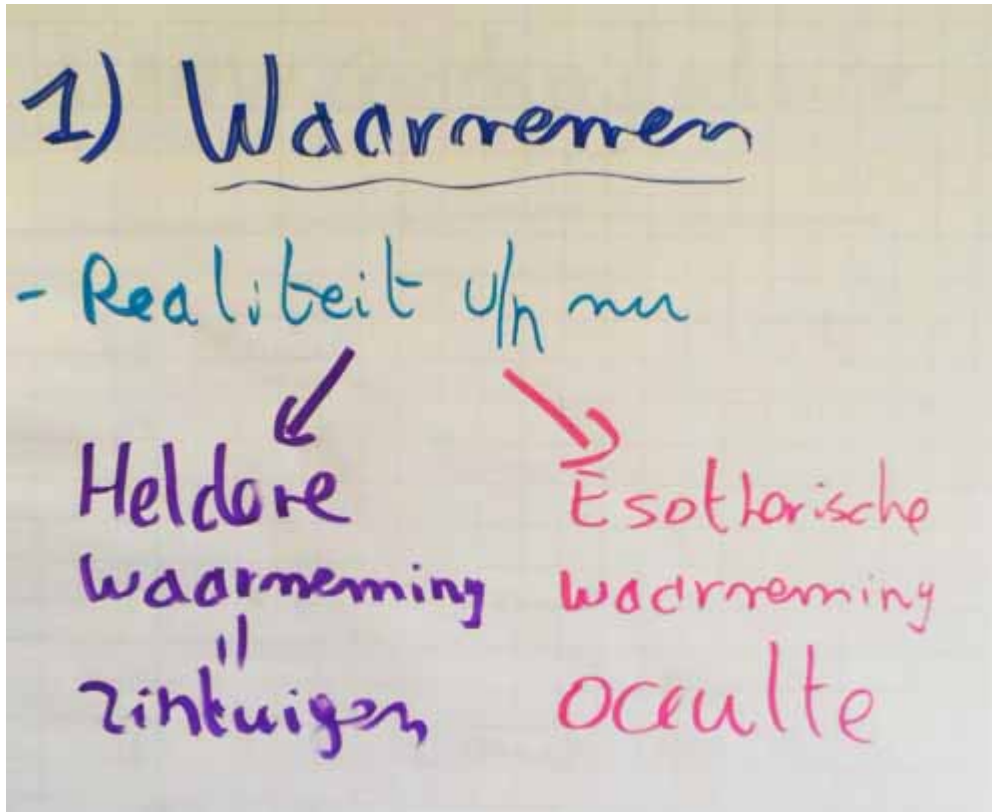 1) Waarnemen
- Realiteit v/h nu
Heldere
waarneming
=
zintuigen
Esotherische
waarneming
occulte